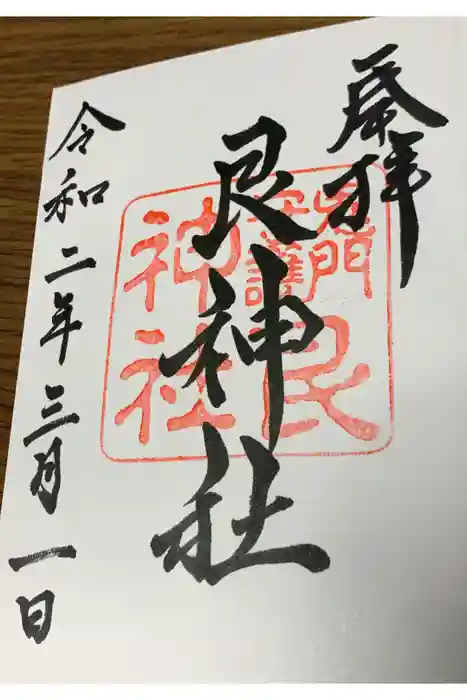 奉拝
艮神社
令和二年三月一日
鬼門
守護
艮
神社